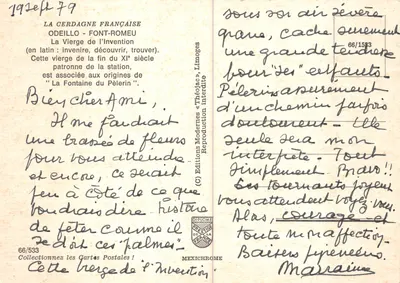 19 sept 79
LA CERDAGNE FRANÇAISE
ODEILLO - FONT-ROMEU
La Vierge de l'Invention
(en latin : invenire, découvrir, trouver).
Cette vierge de la fin du XIe siècle
patronne de la station,
est associée aux origines de
" La Fontaine du Pèlerin ".
Bien cher Ami,
Il me faudrait
une brassée de fleurs
pour vous attendre
et encore, ce serait
peu à côté de ce que
voudrais dire histoire
de fêter comme il
se doit ces "palmes".
66/533
Collectionnez les Cartes Postales !
Cette vierge de "l'Invention"
(C) Editions Modernes «Théojac», Limoges
Reproduction interdite
MEXICHROME
sous son air sévère
grave, cache surement
une grande tendresse
66/1533
pour "ses" enfants.
Pélerins assurement
d'un chemin parfois
douloureux - Elle
seule sera mon
interprète. Tout
simplement Bravo !!
Les tournants joyeux
vous attendent voyez-vous.
Alors, courage - et
toute mon affection.
Baisers pyrénéens.
Marraine